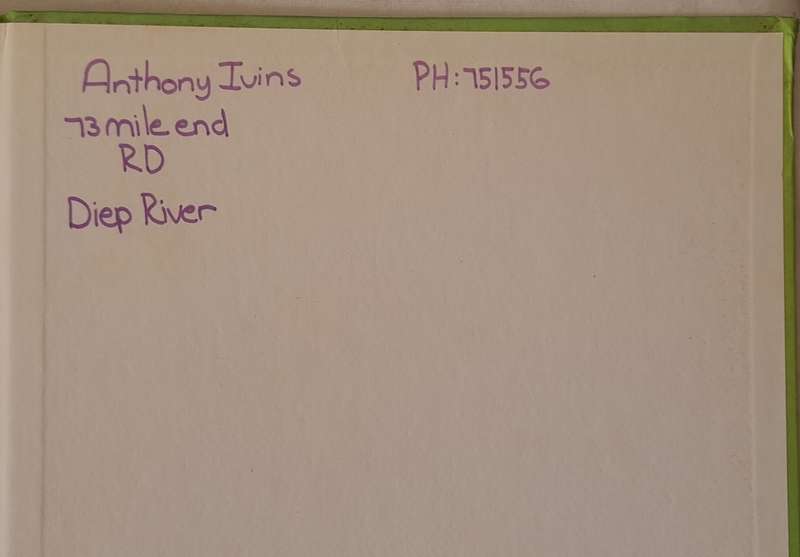 Anthony Ivins PH: 751556
73 mile end
RD
Diep River